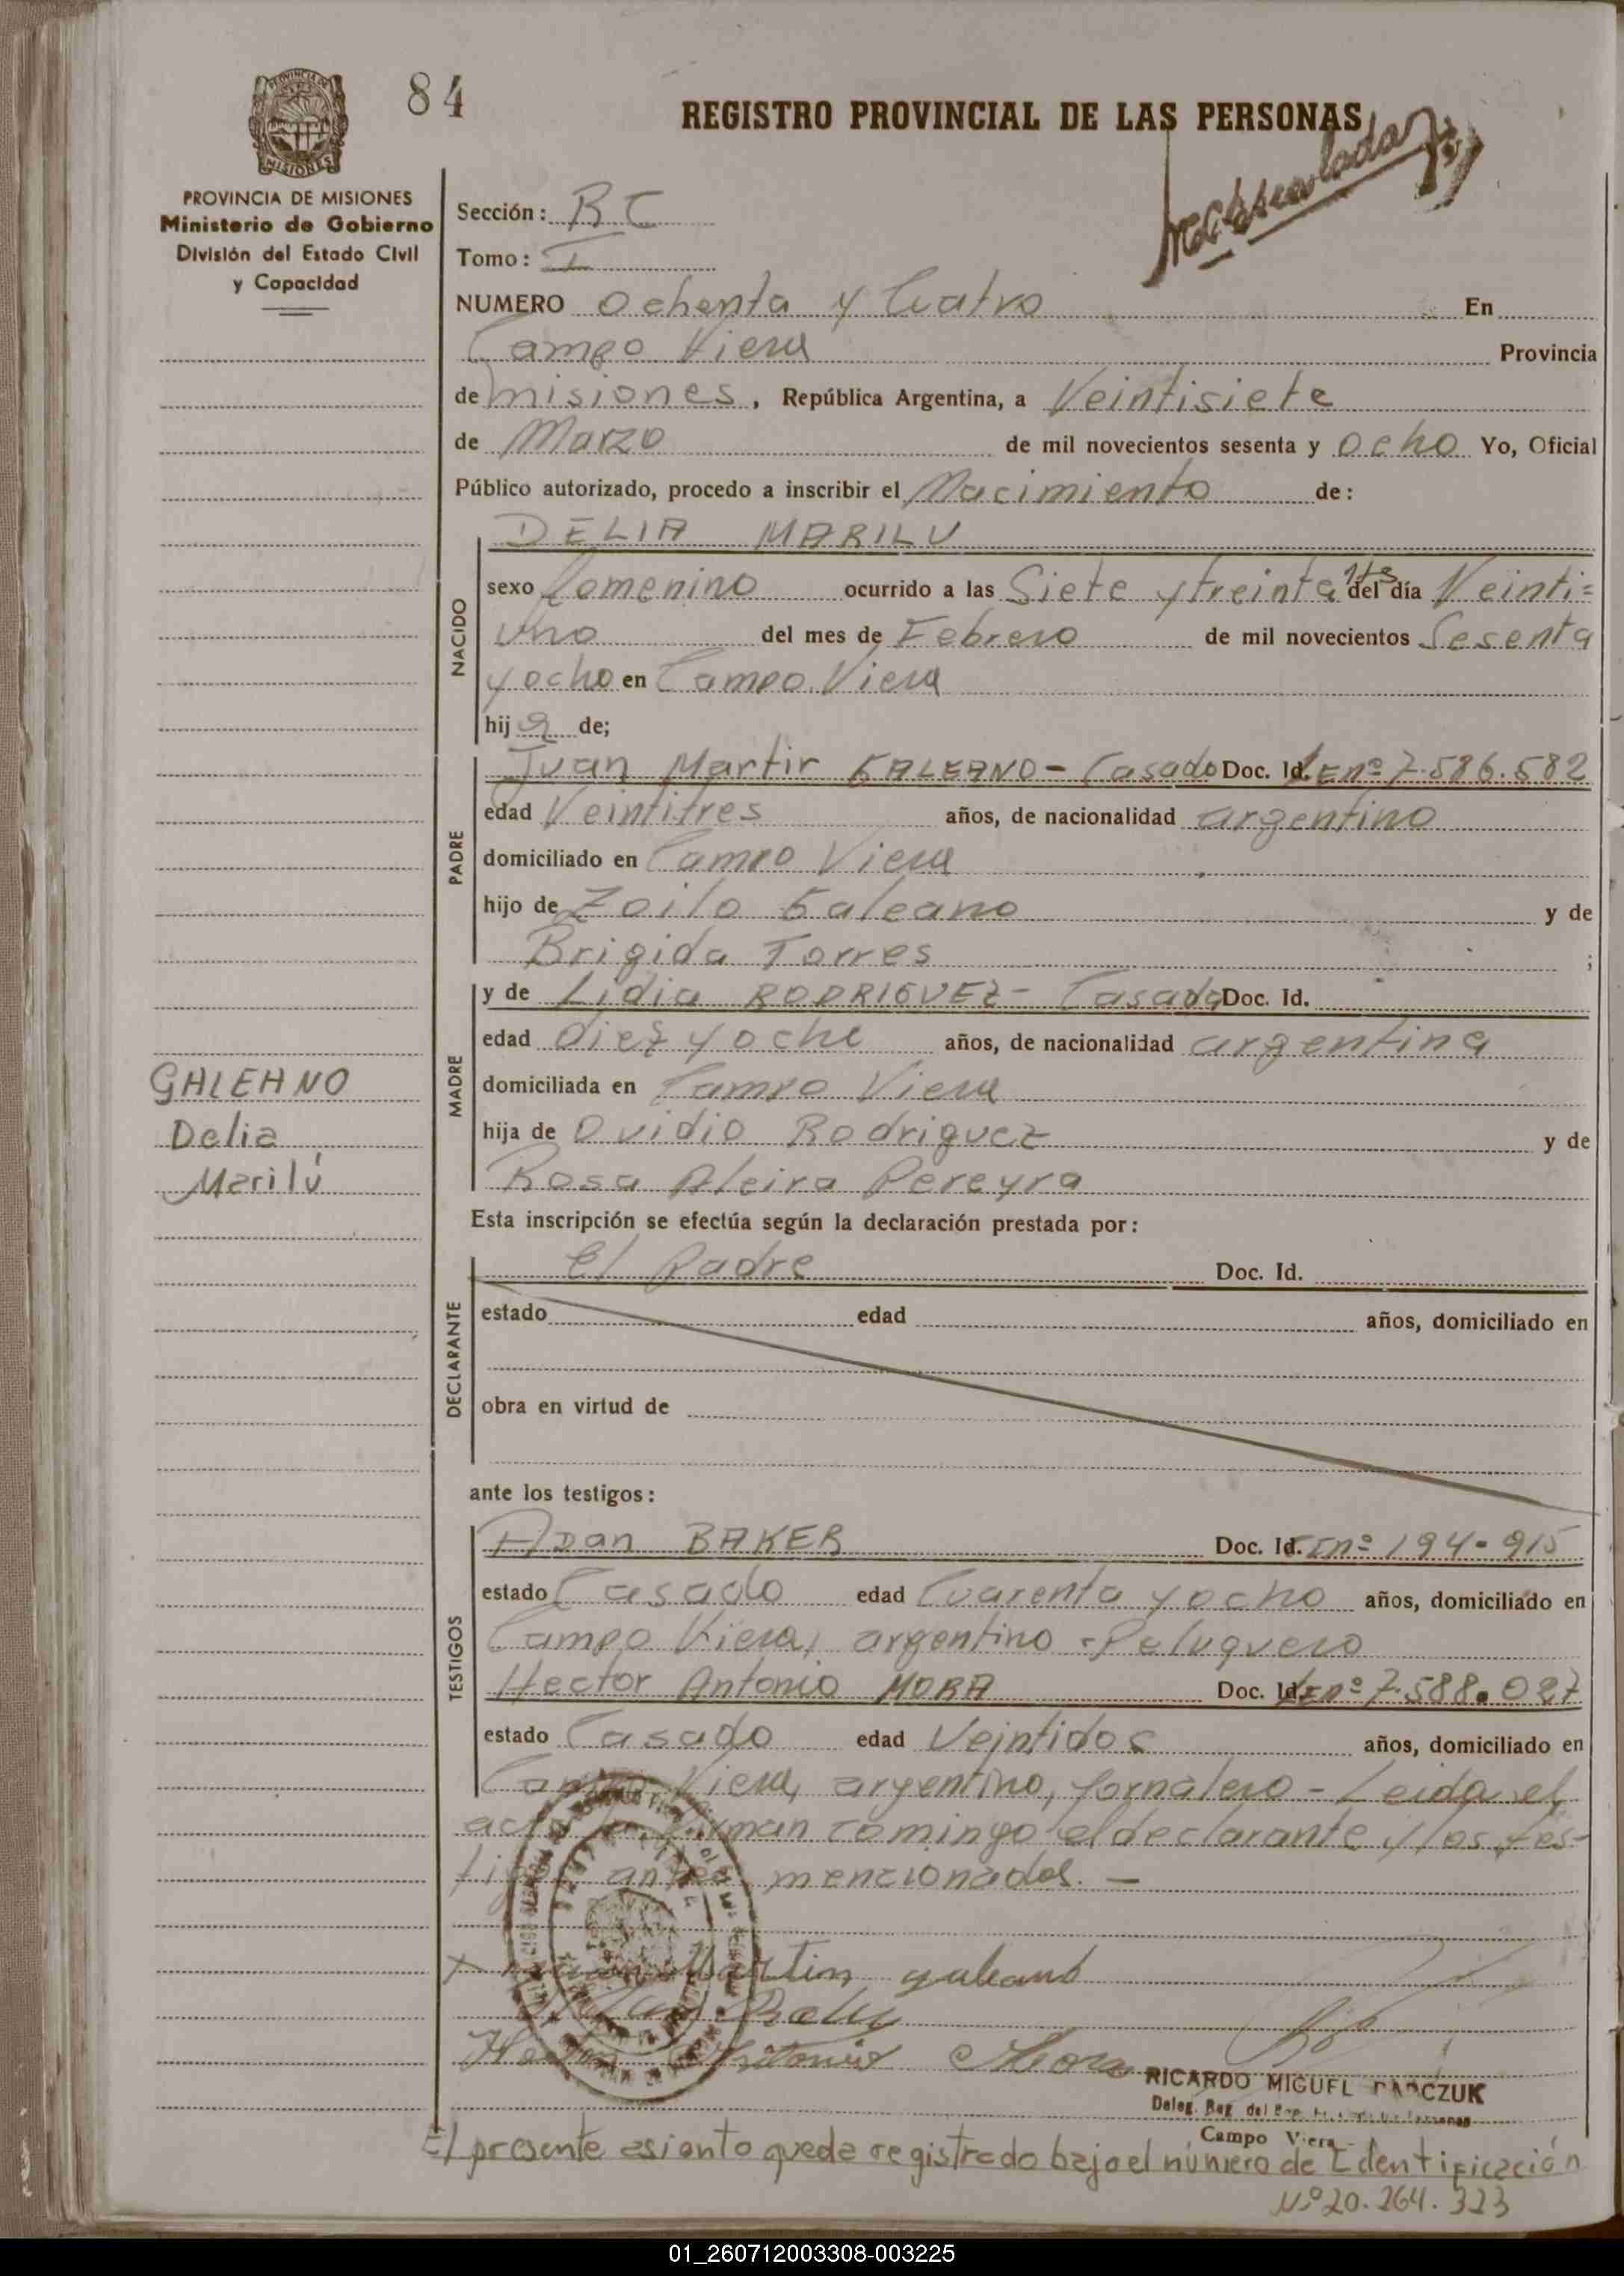 84
REGISTRO PROVINCIAL DE LAS PERSONAS
PROVINCIA DE
MISIONES
PROVINCIA DE MISIONES
Ministerio de Gobierno
División del Estado Civil
y Capacidad
Sección: RC
Tomo: I
NUMERO Ochenta y Cuatro En
Campo Viera Provincia
de misiones, República Argentina, a Veintisiete
de Marzo de mil novecientos sesenta y ocho Yo, Oficial
Público autorizado, procedo a inscribir el Nacimiento de:
NACIDO
DELIA MARILU
sexo femenino ocurrido a las Siete y treinta hs del día Veinti=
uno del mes de Febrero de mil novecientos Sesenta
y ocho en Campo Viera
hija de;
PADRE
Juan Martir GALEANO - Casado Doc. Id. LE nº 7.586.582
edad Veintitres años, de nacionalidad argentino
domiciliado en Campo Viera
hijo de Zoilo Galeano y de
Brigida Torres ;
MADRE
y de Lidia RODRIGUEZ - Casada Doc. Id.
edad diez y ocho años, de nacionalidad argentina
domiciliada en Campo Viera
hija de Ovidio Rodriguez y de
Rosa Pereyra
GALEANO
Delia
Marilú
Esta inscripción se efectúa según la declaración prestada por:
DECLARANTE
El Padre Doc. Id.
estado edad años, domiciliado en
obra en virtud de
ante los testigos:
TESTIGOS
Adan BAKER Doc. Id. nº 194.915
estado Casado edad Cuarenta y ocho años, domiciliado en
Campo Viera, argentino - Peluquero
Hector Antonio MORA Doc. Id. LE nº 7.588.027
estado Casado edad Veintidos años, domiciliado en
Campo Viera, argentino, jornalero - Leida el
acta la firman comingo el declarante y los tes-
tigos antes mencionados. -
x Martin galeano
Hector Antonio Mora
RICARDO MIGUEL
Campo Viera
El presente asiento queda registrado bajo el número de Identificación
Nº 20.264.323
01_260712003308-003225